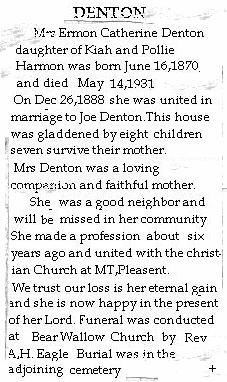 DENTON
Mrs Ermon Catherine Denton
daughter of Kiah and Pollie
Harmon was born June 16,1870
and died May 14,1931
On Dec 26,1888 she was united in
marriage to Joe Denton.This house
was gladdened by eight children
seven survive their mother.
Mrs Denton was a loving
companion and faithful mother.
She was a good neighbor and
will be missed in her community
She made a profession about six
years ago and united with the christ-
ian Church at MT,Pleasent.
We trust our loss is her eternal gain
and she is now happy in the present
of her Lord. Funeral was conducted
at Bear Wallow Church by Rev
A,H. Eagle Burial was in the
adjoining cemetery +